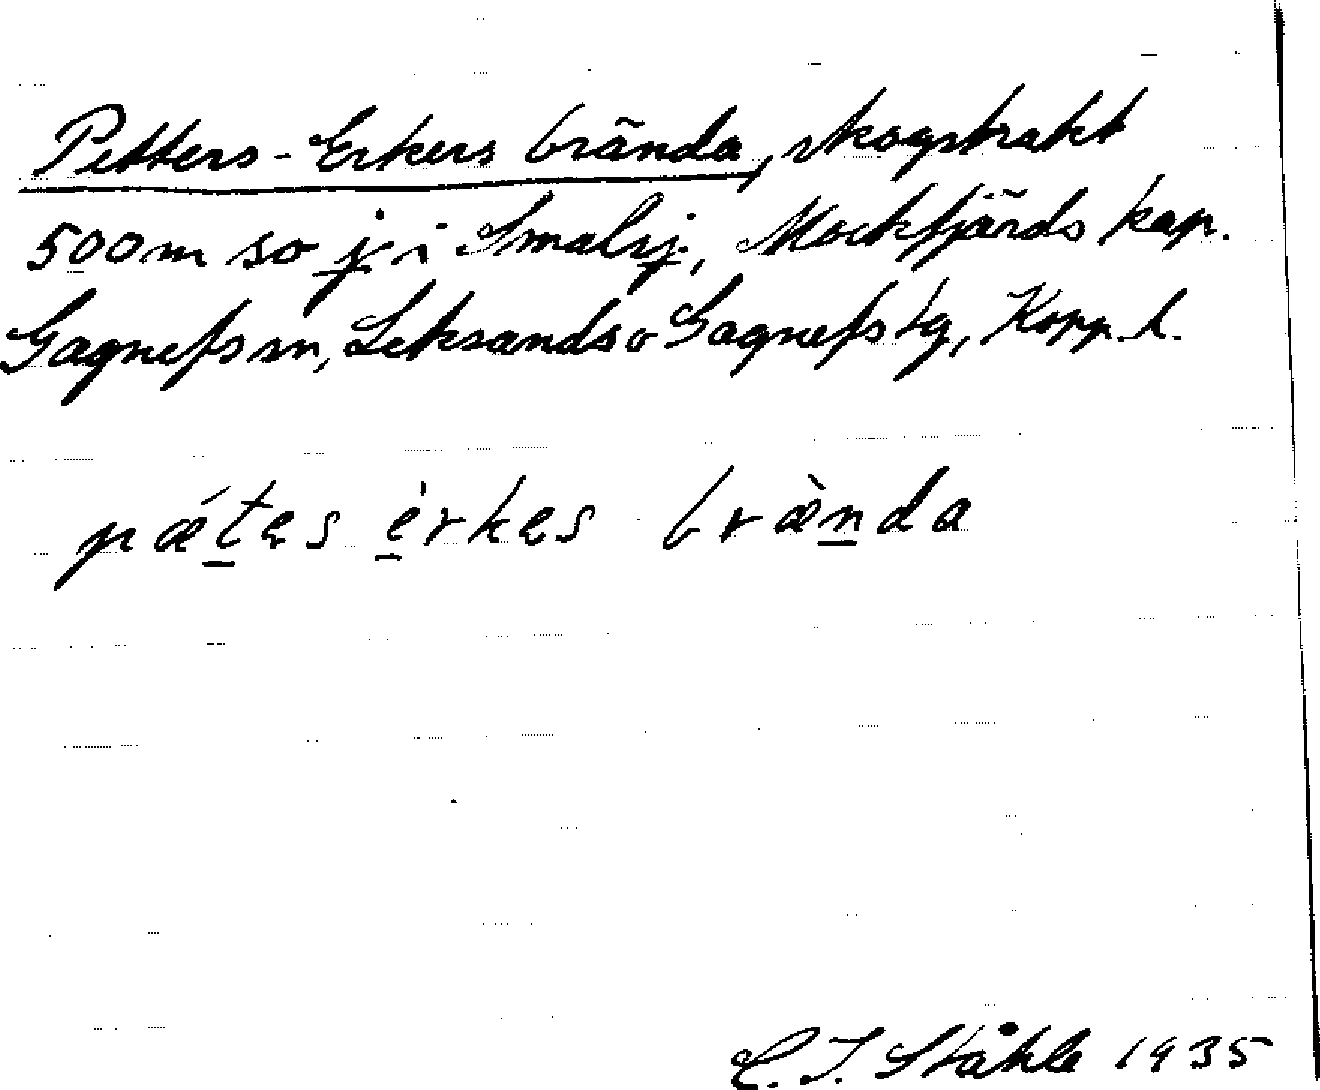 Petters-Erkers brända, skogstrakt
500m so j i Smalsj., Mockfjärds kap.
Gagnefs sn, Leksands o Gagnefs tg, Kopp. l.
pǽtęs èrkęs bræ̀nda
C. I. Ståhle 1935